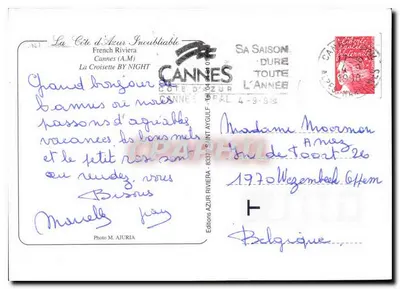 La Côte d'Azur Inoubliable
French Riviera
Cannes (A.M)
La Croisette BY NIGHT
Grand bonjour de
Cannes où nous
passons d'agréables
vacances, les bons mets
et le petit rosé son
au rendez, vous
Bisous
Photo M. AJURIA
Editions AZUR RIVIERA - 83370 SAINT AYGULF
CANNES
CÔTE D'AZUR
SA SAISON
DURE
TOUTE
L'ANNÉE
Madame Moormon
1970 Wezembeek Oppem
T
Belgique